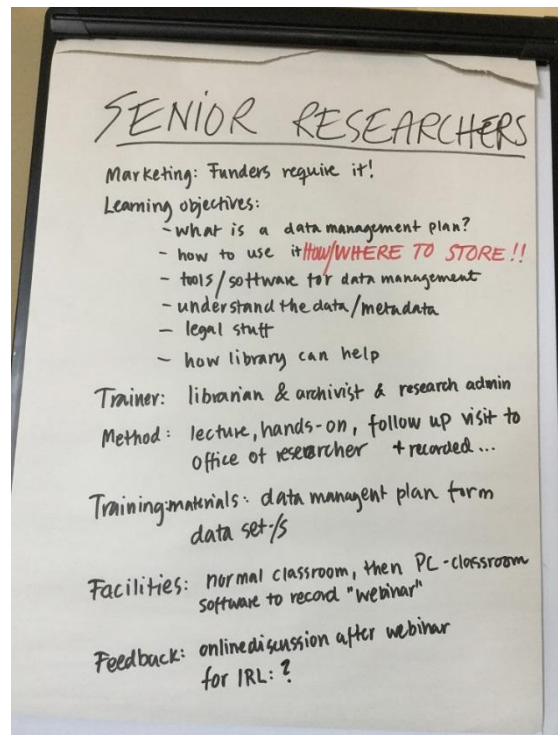 SENIOR RESEARCHERS
Marketing: Funders require it!
Learning objectives:
- what is a data management plan?
- how to use it How/WHERE TO STORE!!
- tools/software for data management
- understand the data/metadata
- legal stuff
- how library can help
Trainer: librarian & archivist & research admin
Method: lecture, hands-on, follow up visit to
office of researcher + recorded...
Training:materials: data managent plan form
data set-/s
Facilities: normal classroom, then PC-classroom
software to record "webinar"
Feedback: onlinediscussion after webinar
for IRL: ?